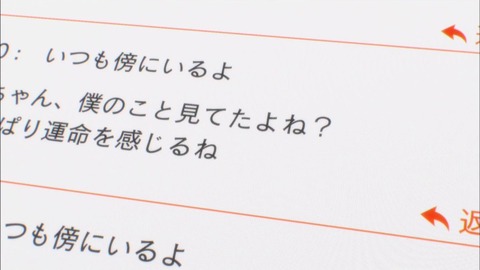 ： いつも傍にいるよ
ちゃん、僕のこと見てたよね？
ぱり運命を感じるね
返
つも傍にいるよ